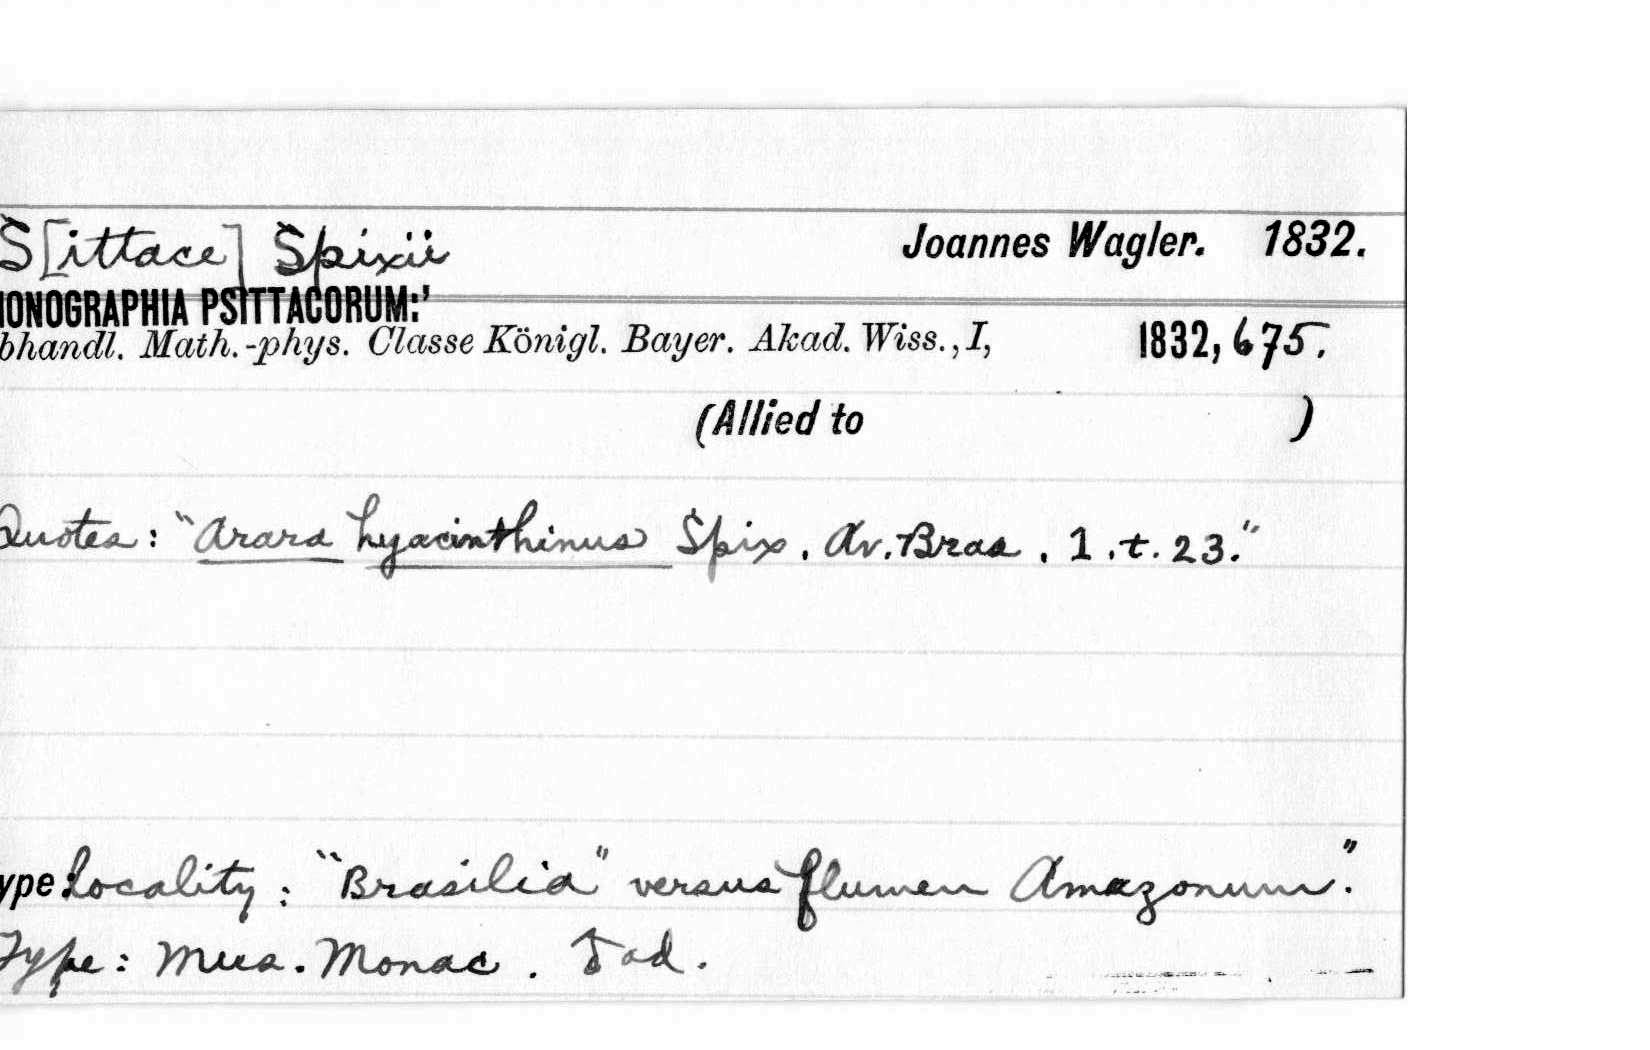 S[ittace] Spixii Joannes Wagler. 1832.
IONOGRAPHIA PSITTACORUM:'
bhandl. Math.-phys. Classe Königl. Bayer. Akad. Wiss., I, 1832, 675.
(Allied to )
Quotes: "Arara hyacinthinus Spix, Av. Bras, 1.t.23."
ype locality: "Brasilia" versus flumen Amazonum."
Type: Mus. Monac. ad.